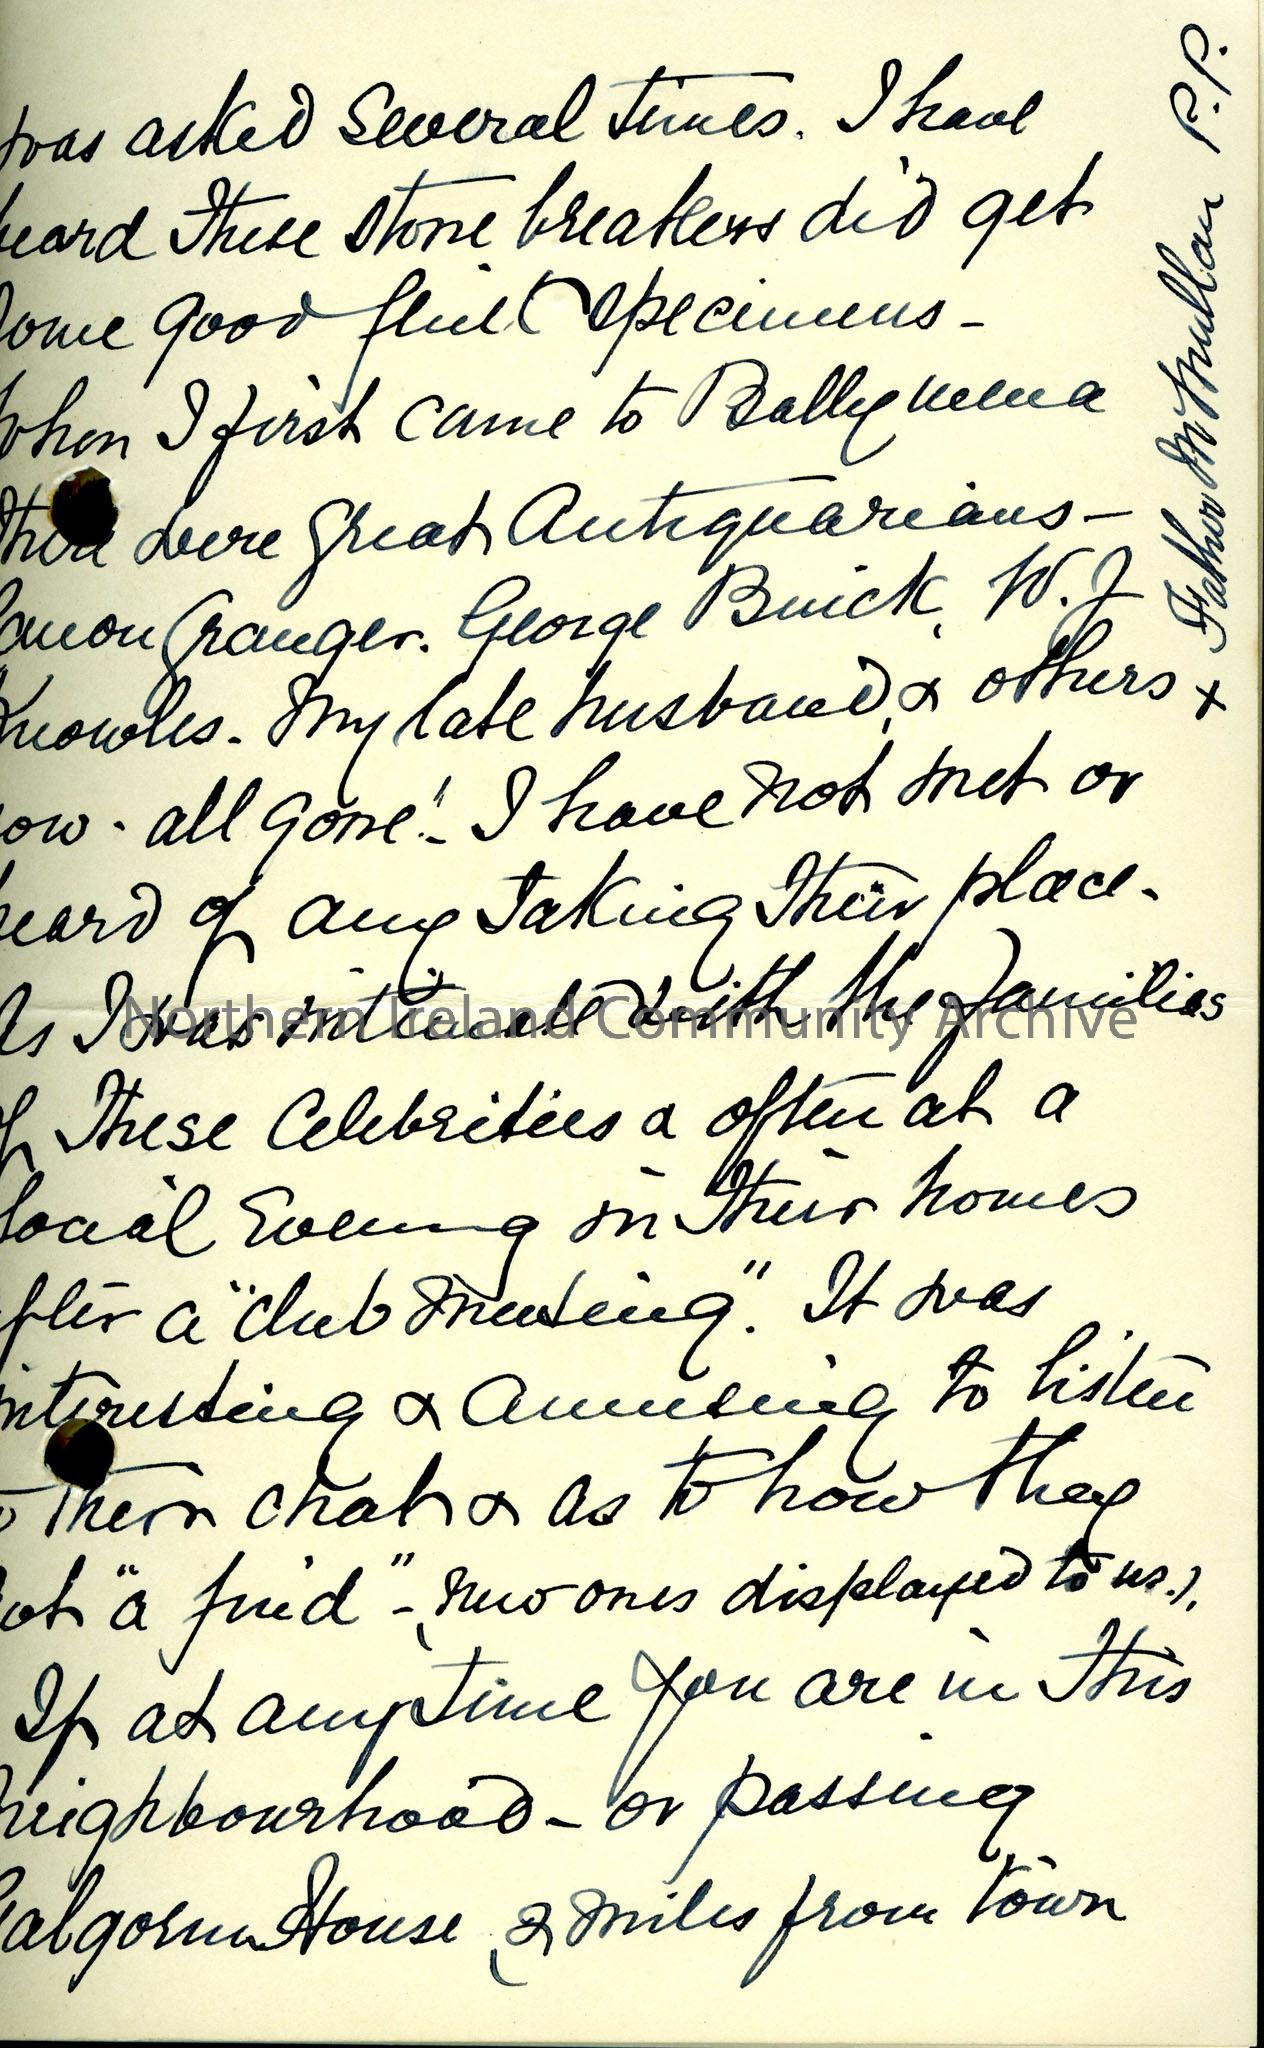 was asked several times. I have
heard these stone breakers did get
some good flint specimens -
when I first came to Ballymena
there were great Antiquarians -
Canon Grainger. George Buick, W. J
Knowles. My late husband, & others
now - all gone! - I have not met or
heard of any taking their place -
As I was intimate with the families
of these Celebrities & often at a
social Evening in their homes
after a "club meeting". It was
interesting & amusing to listen
to their chat & as to how they
got "a find" - (new ones displayed to us.).
If at any time you are in this
neighbourhood - or passing
Galgorm House (2 miles from town
+ Father McMullan P.P.
Northern Ireland Community Archive